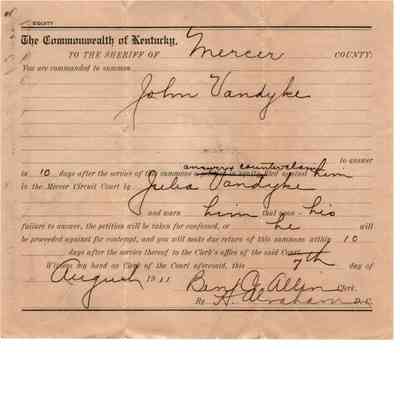 EQUITY
The Commonwealth of Kentucky,
TO THE SHERIFF OF Mercer COUNTY:
You are commanded to summon
John Vandyke
to answer
in 10 days after the service of this summons answer & counterclaim filed against him
in the Mercer Circuit Court by Julia Vandyke
and warn him that upon his
failure to answer, the petition will be taken for confessed, or he will
be proceeded against for contempt, and you will make due return of this summons within 10
days after the service thereof to the Clerk's office of the said Court.
Witness my hand as Clerk of the Court aforesaid, this 7th day of
August 1911 Ben C. Allin Clerk.
By H. Abraham D.C.